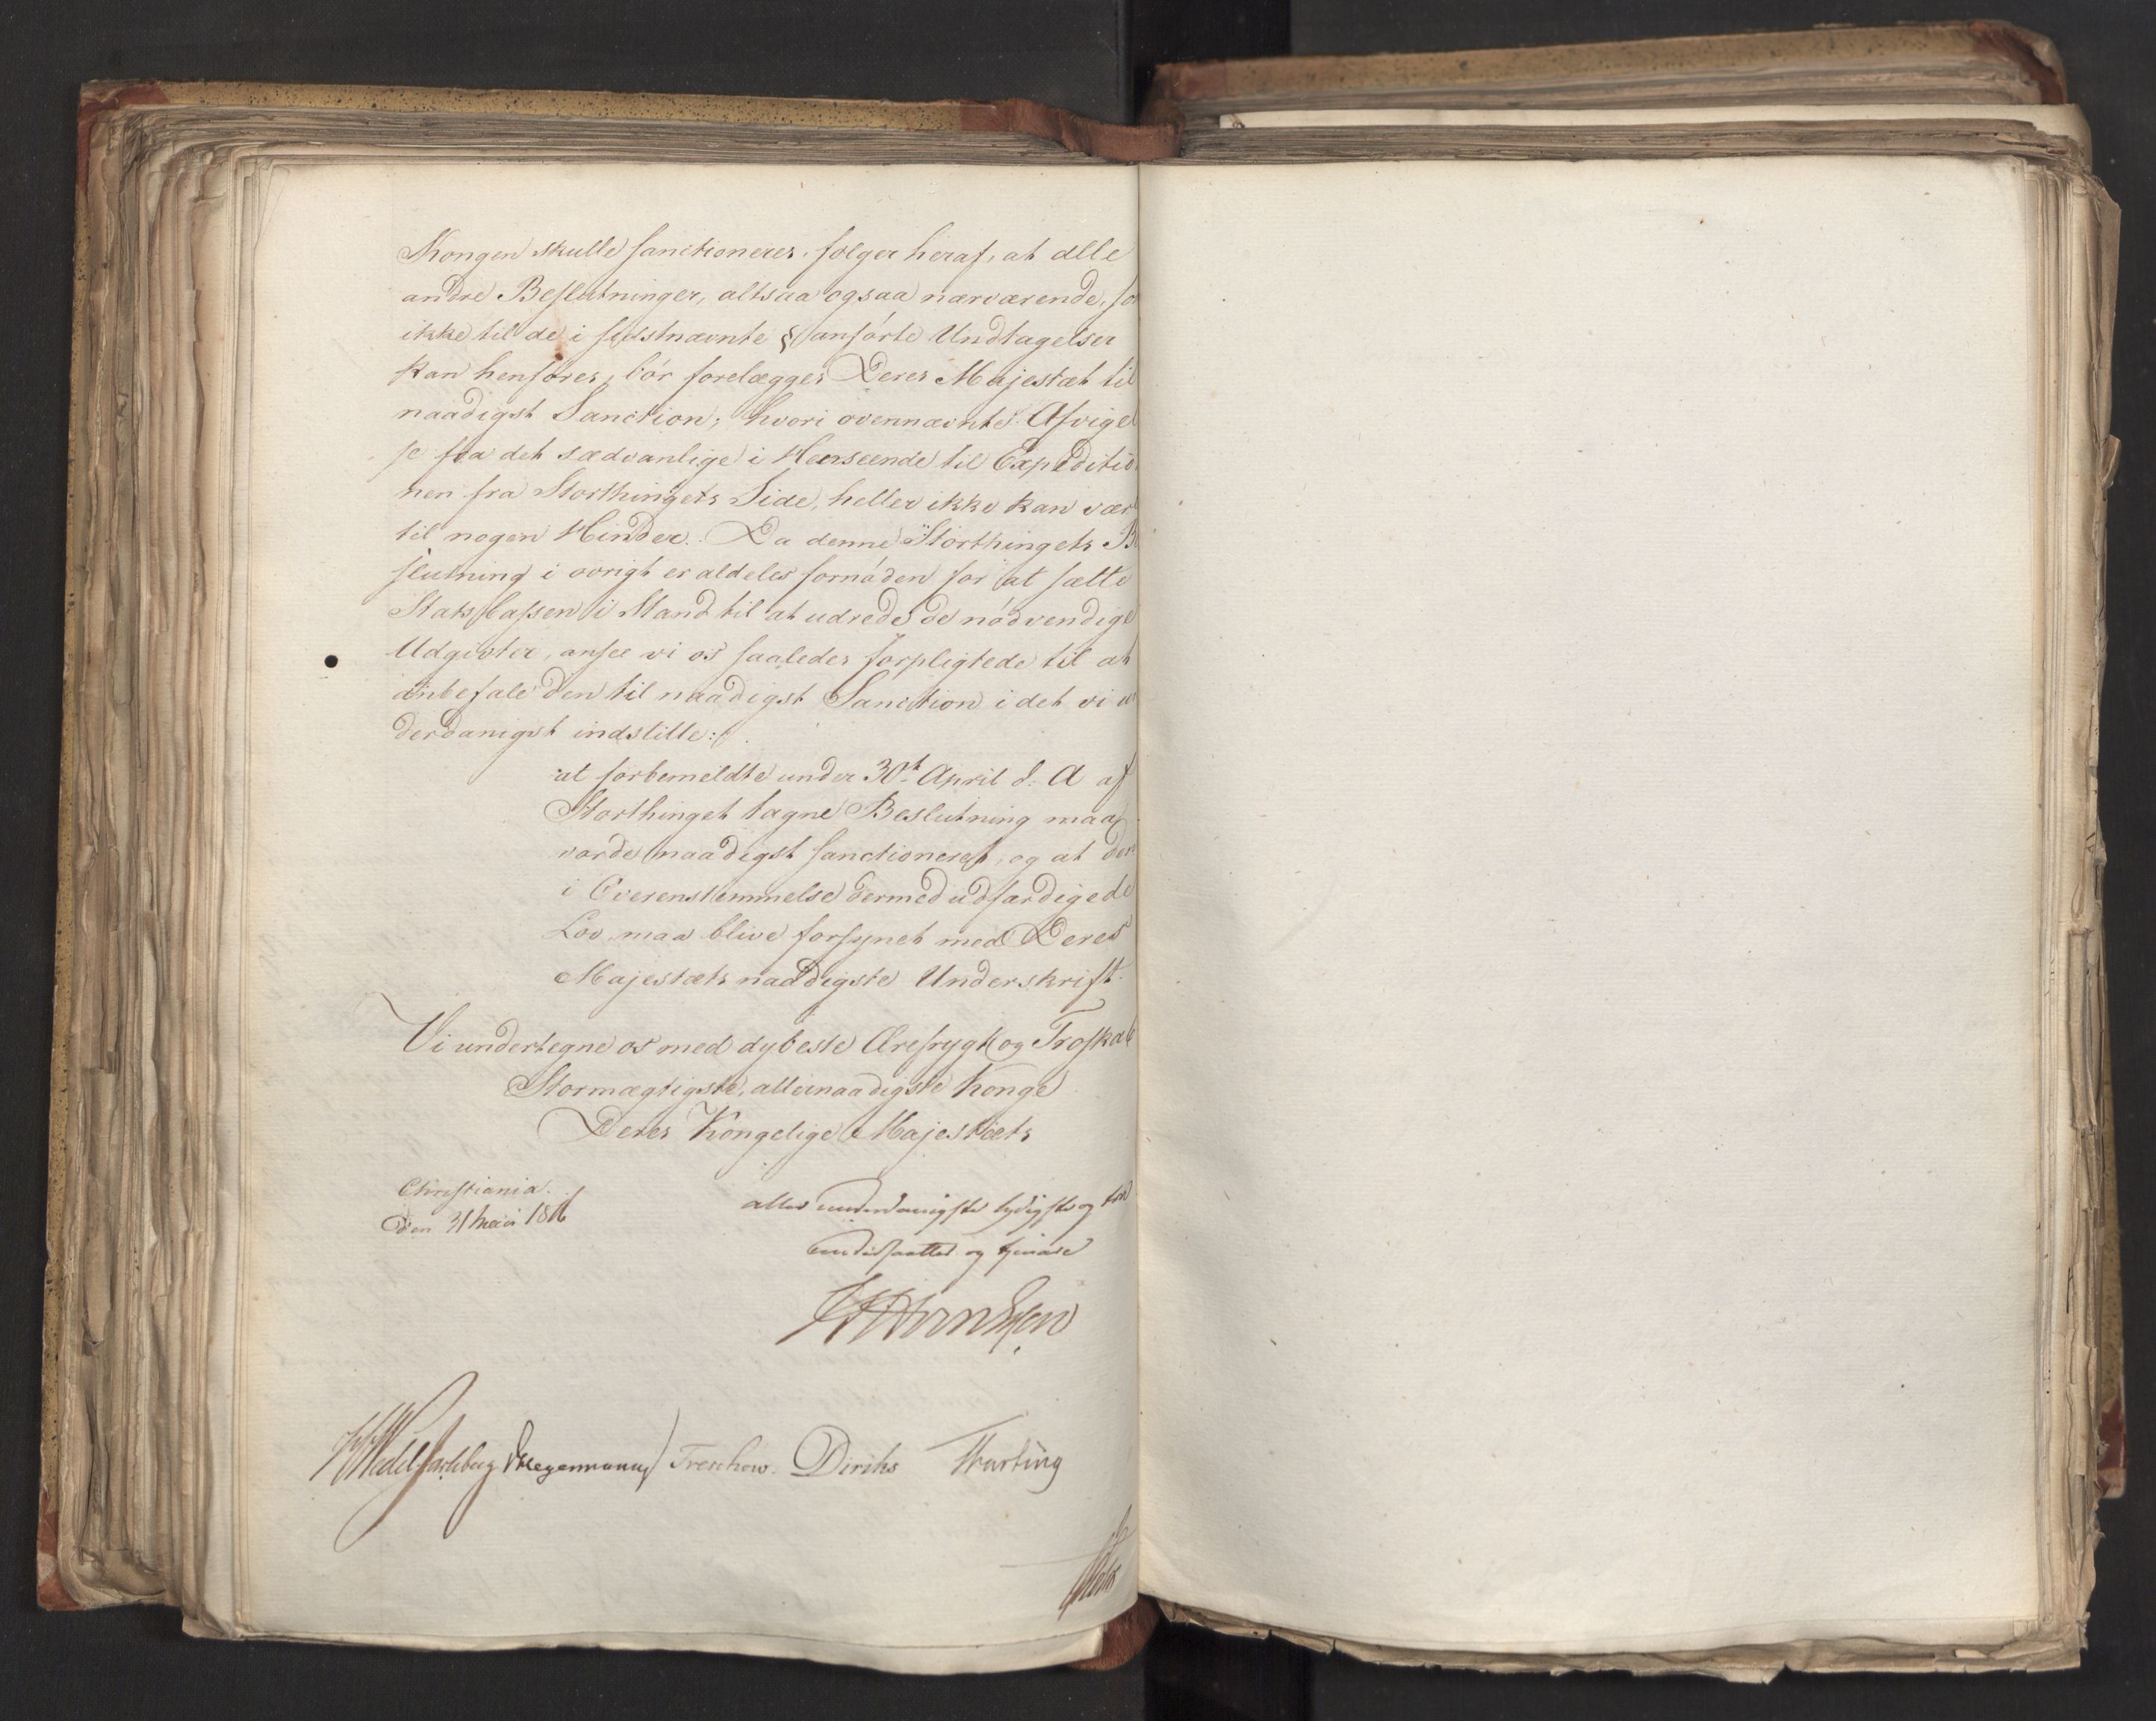 Kongen skulle sanctioneres, følger heraf, at alle
andre Beslutninger, altsaa ogsaa nærværende, so
ikke til de i sidstnævnte § anførte Undtagelser
kan henføres, bør forelægges Deres Majestæt til
naadigst Sanction; hvori ovennævnte Afvigel
se fra det sædvanlige i Henseende til Expeditio
nen fra Storthingets Side, heller ikke kan vær
til nogen Hinder. Da denne Storthingets B
slutning i øvrigt er aldeles fornøden for at sætte
Stats Cassen i Stand til at udrede de nødvendige
Udgivter, ansee vi os saaledes forpligtede til at
anbefale den til naadigst Sanction i det vi u
derdanigst indstille:
at forbemeldte under 30t April d. A af
Storthinget tagne Beslutning maa
vorde naadigst sanctioneret, og at den
i Overenstemmelse dermed udfærdigede
Lov, maa blive forsynet med Deres
Majestæts naadigste Underskrift.
Vi undertegne os med dybeste Ærefrygt og Troskab
Stormægtigste, allernaadigste Konge
Deres Kongelige Majestæts
Christiania
den 31 Mai 1816
aller underdanigste lydigste og
undersaatter og tjenere
Wedel Jarlsberg Hegermann Treschow. Diriks